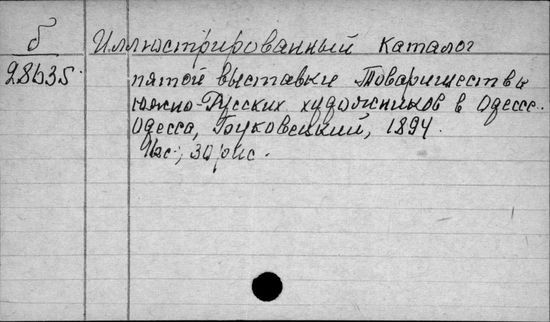 б Иллюстрированный каталог
28635 пятой выставки Товарищества
южно-Русских художников в Одессе.
Одесса, Буковецкий, 1894.
16с; 30 рис.